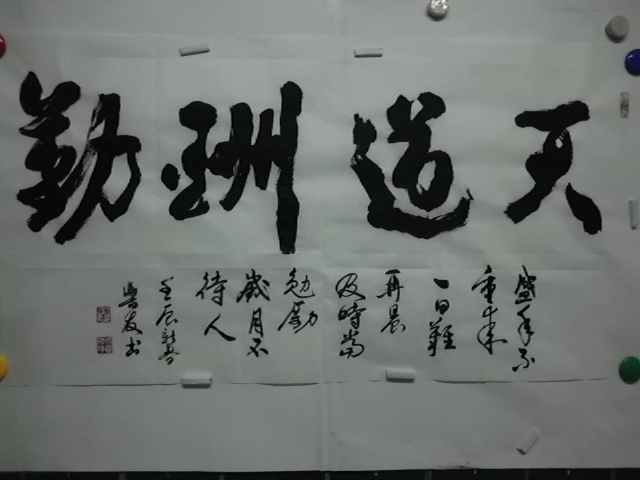 天道酬勤
盛年不
重来
一日難
再晨
及時當
勉励
歲月不
待人
壬辰新春
友书